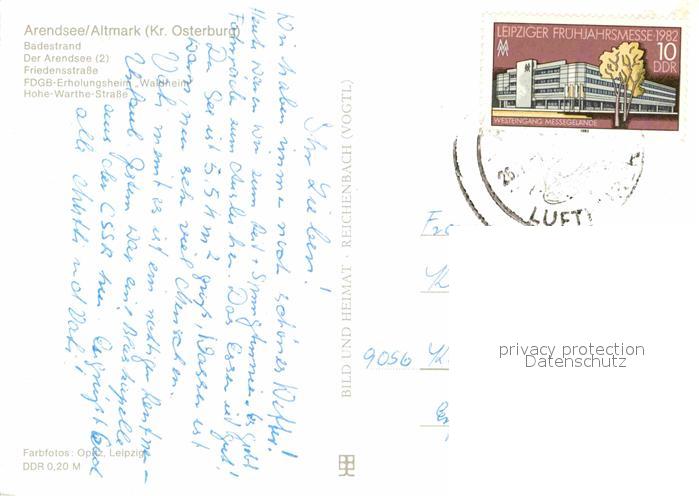 Arendsee/Altmark (Kr. Osterburg)
Badestrand
Der Arendsee (2)
Friedensstraße
FDGB-Erholungsheim „Waldheim"
Hohe-Warthe-Straße
Ihr Lieben!
Wir haben immer noch schönes Wetter!
Heute waren wir zum
zum Ausleihen. Das Essen ist gut!
Der See ist 5,54 m² groß, Wasser ist
warm, nur sehr viel Menschen.
Wolf meint es ist ein richtiger Rentner-
Urlaub. Gestern war eine Blaskapelle
aus der CSSR hier. Es grüßt Euch
alle Mutti und Vati!
Farbfotos: Opitz, Leipzig
DDR 0,20 M
BILD UND HEIMAT · REICHENBACH (VOGTL)
LEIPZIGER FRÜHJAHRSMESSE 1982
10
DDR
WESTEINGANG MESSEGELÄNDE
1982
LUFT
9056
privacy protection
Datenschutz